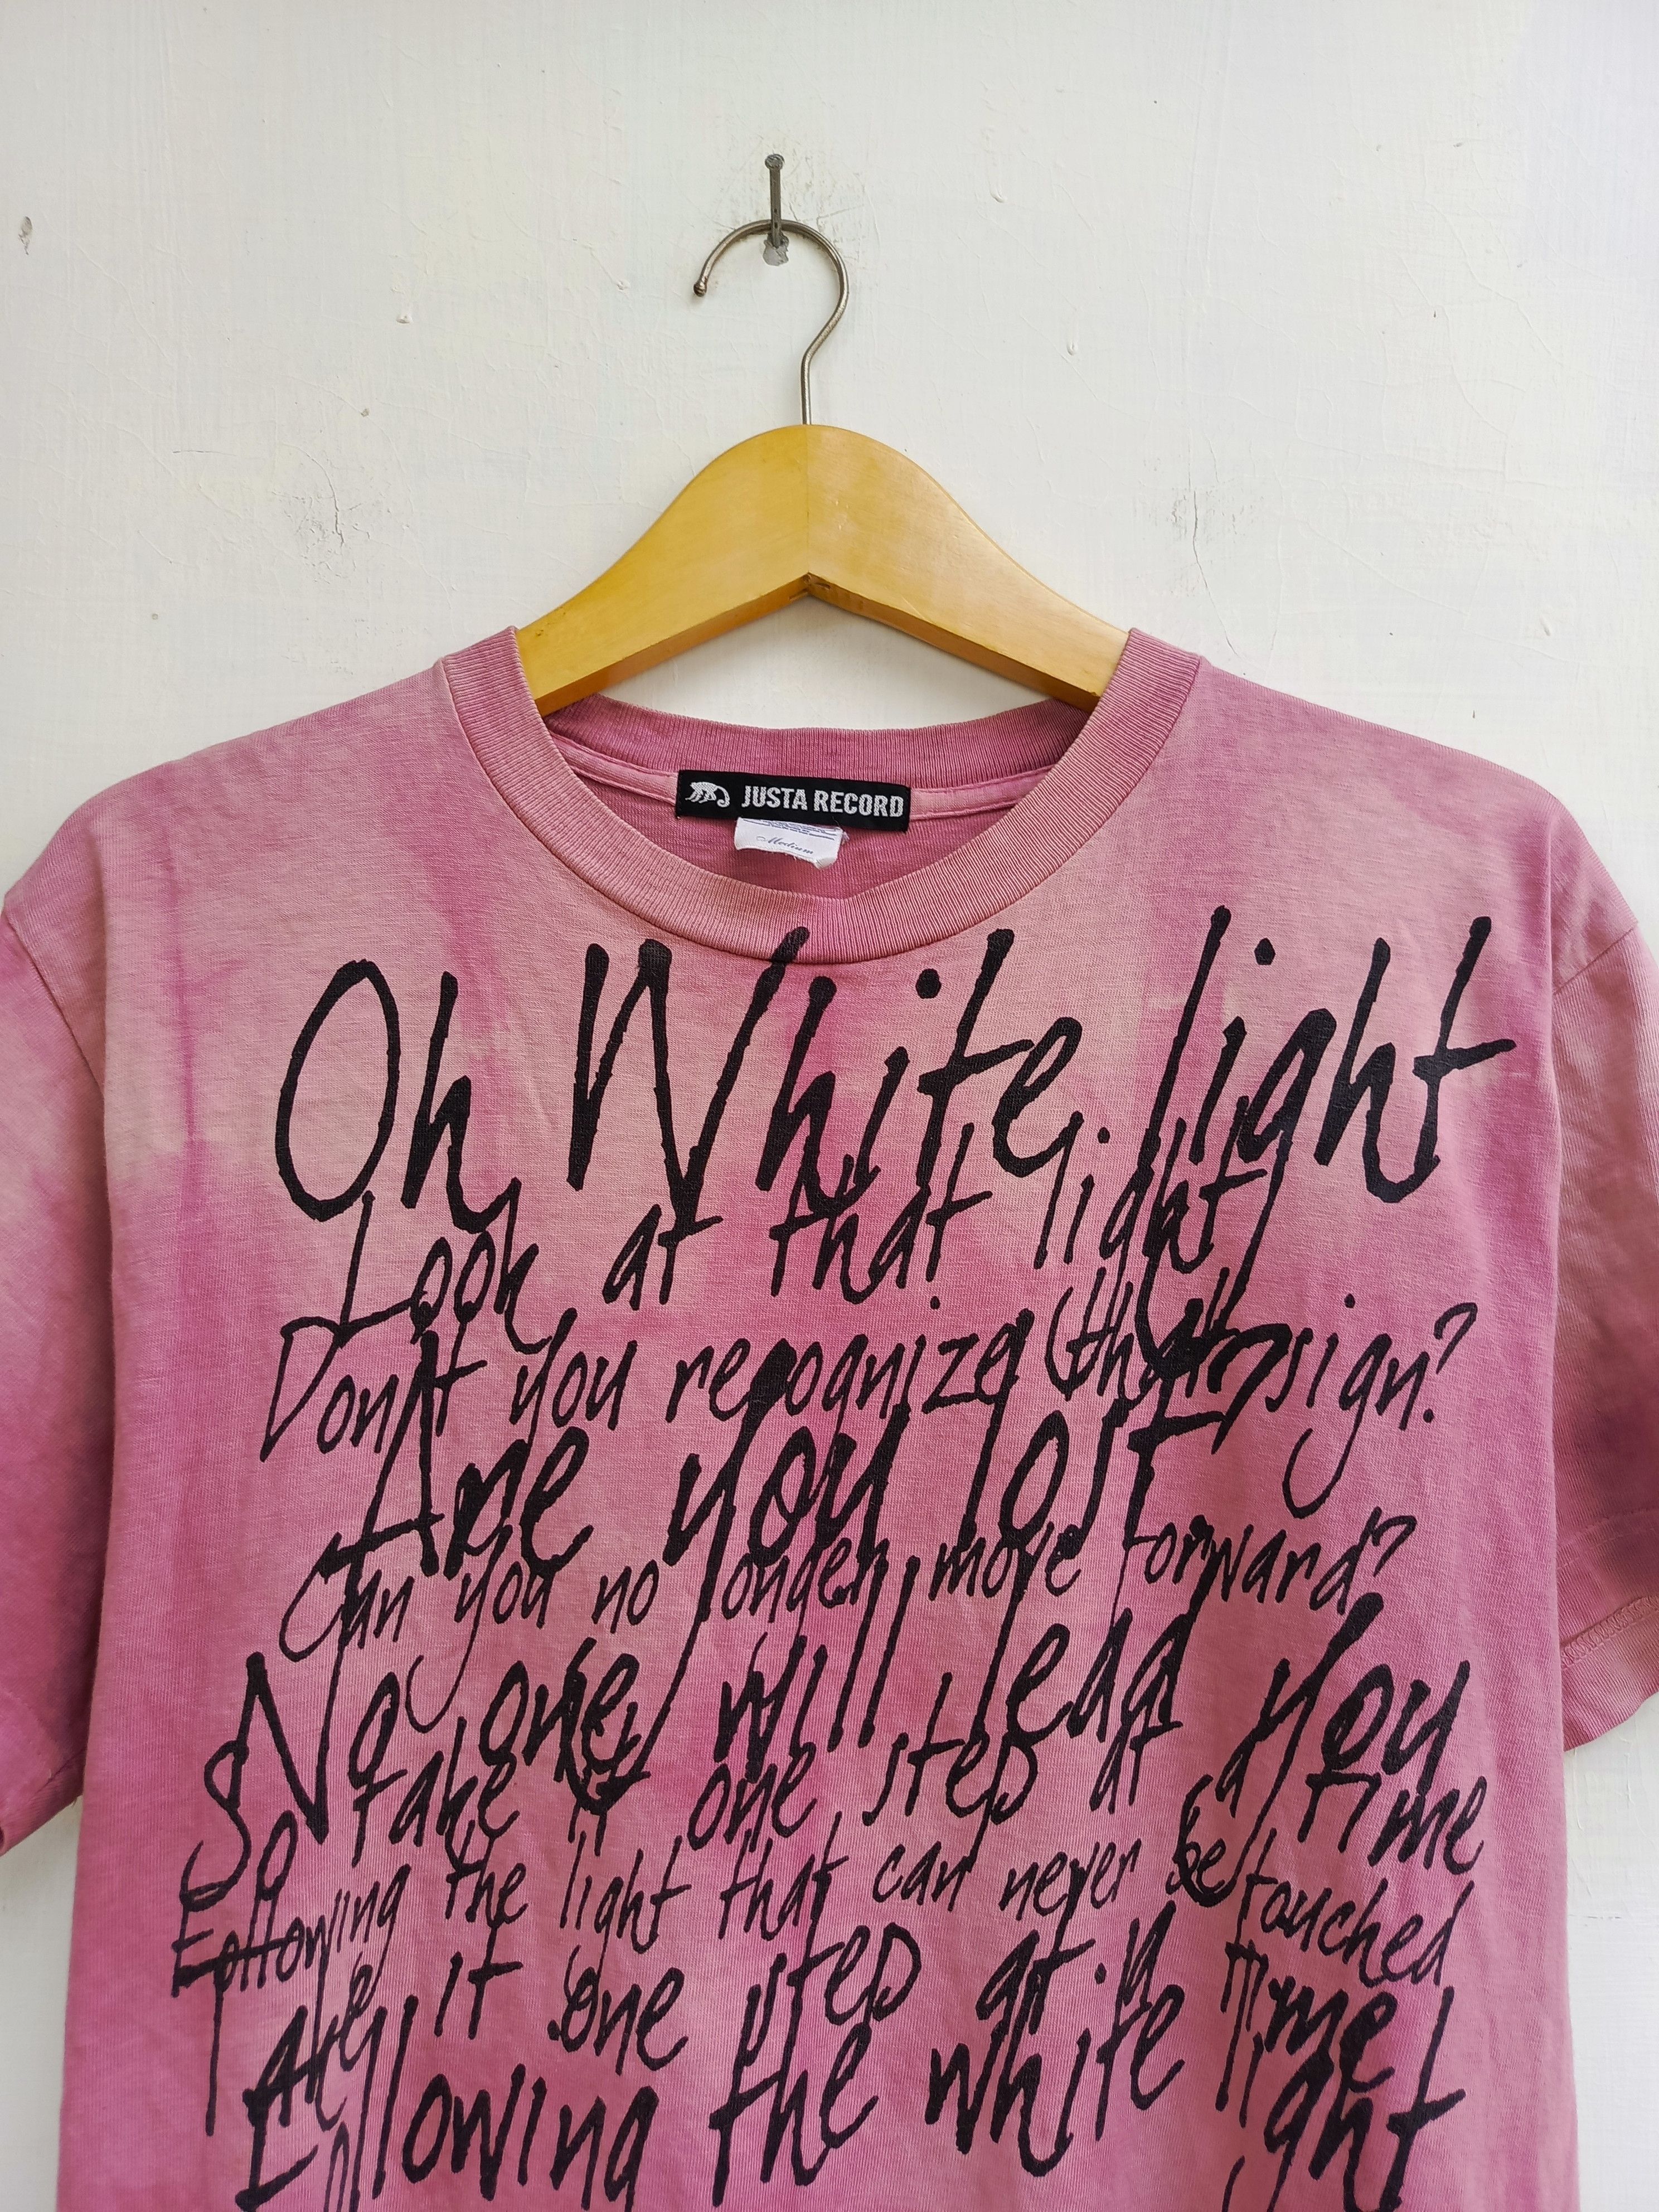 JUSTA RECORD
Medium
Oh White light
Look at that light
Don't you recognize that sign?
Are you lost
Can you no longer move forward?
No one will lead you
So take it one step at a time
Following the light that can never be touched
Take it one step at a time
Following the white light